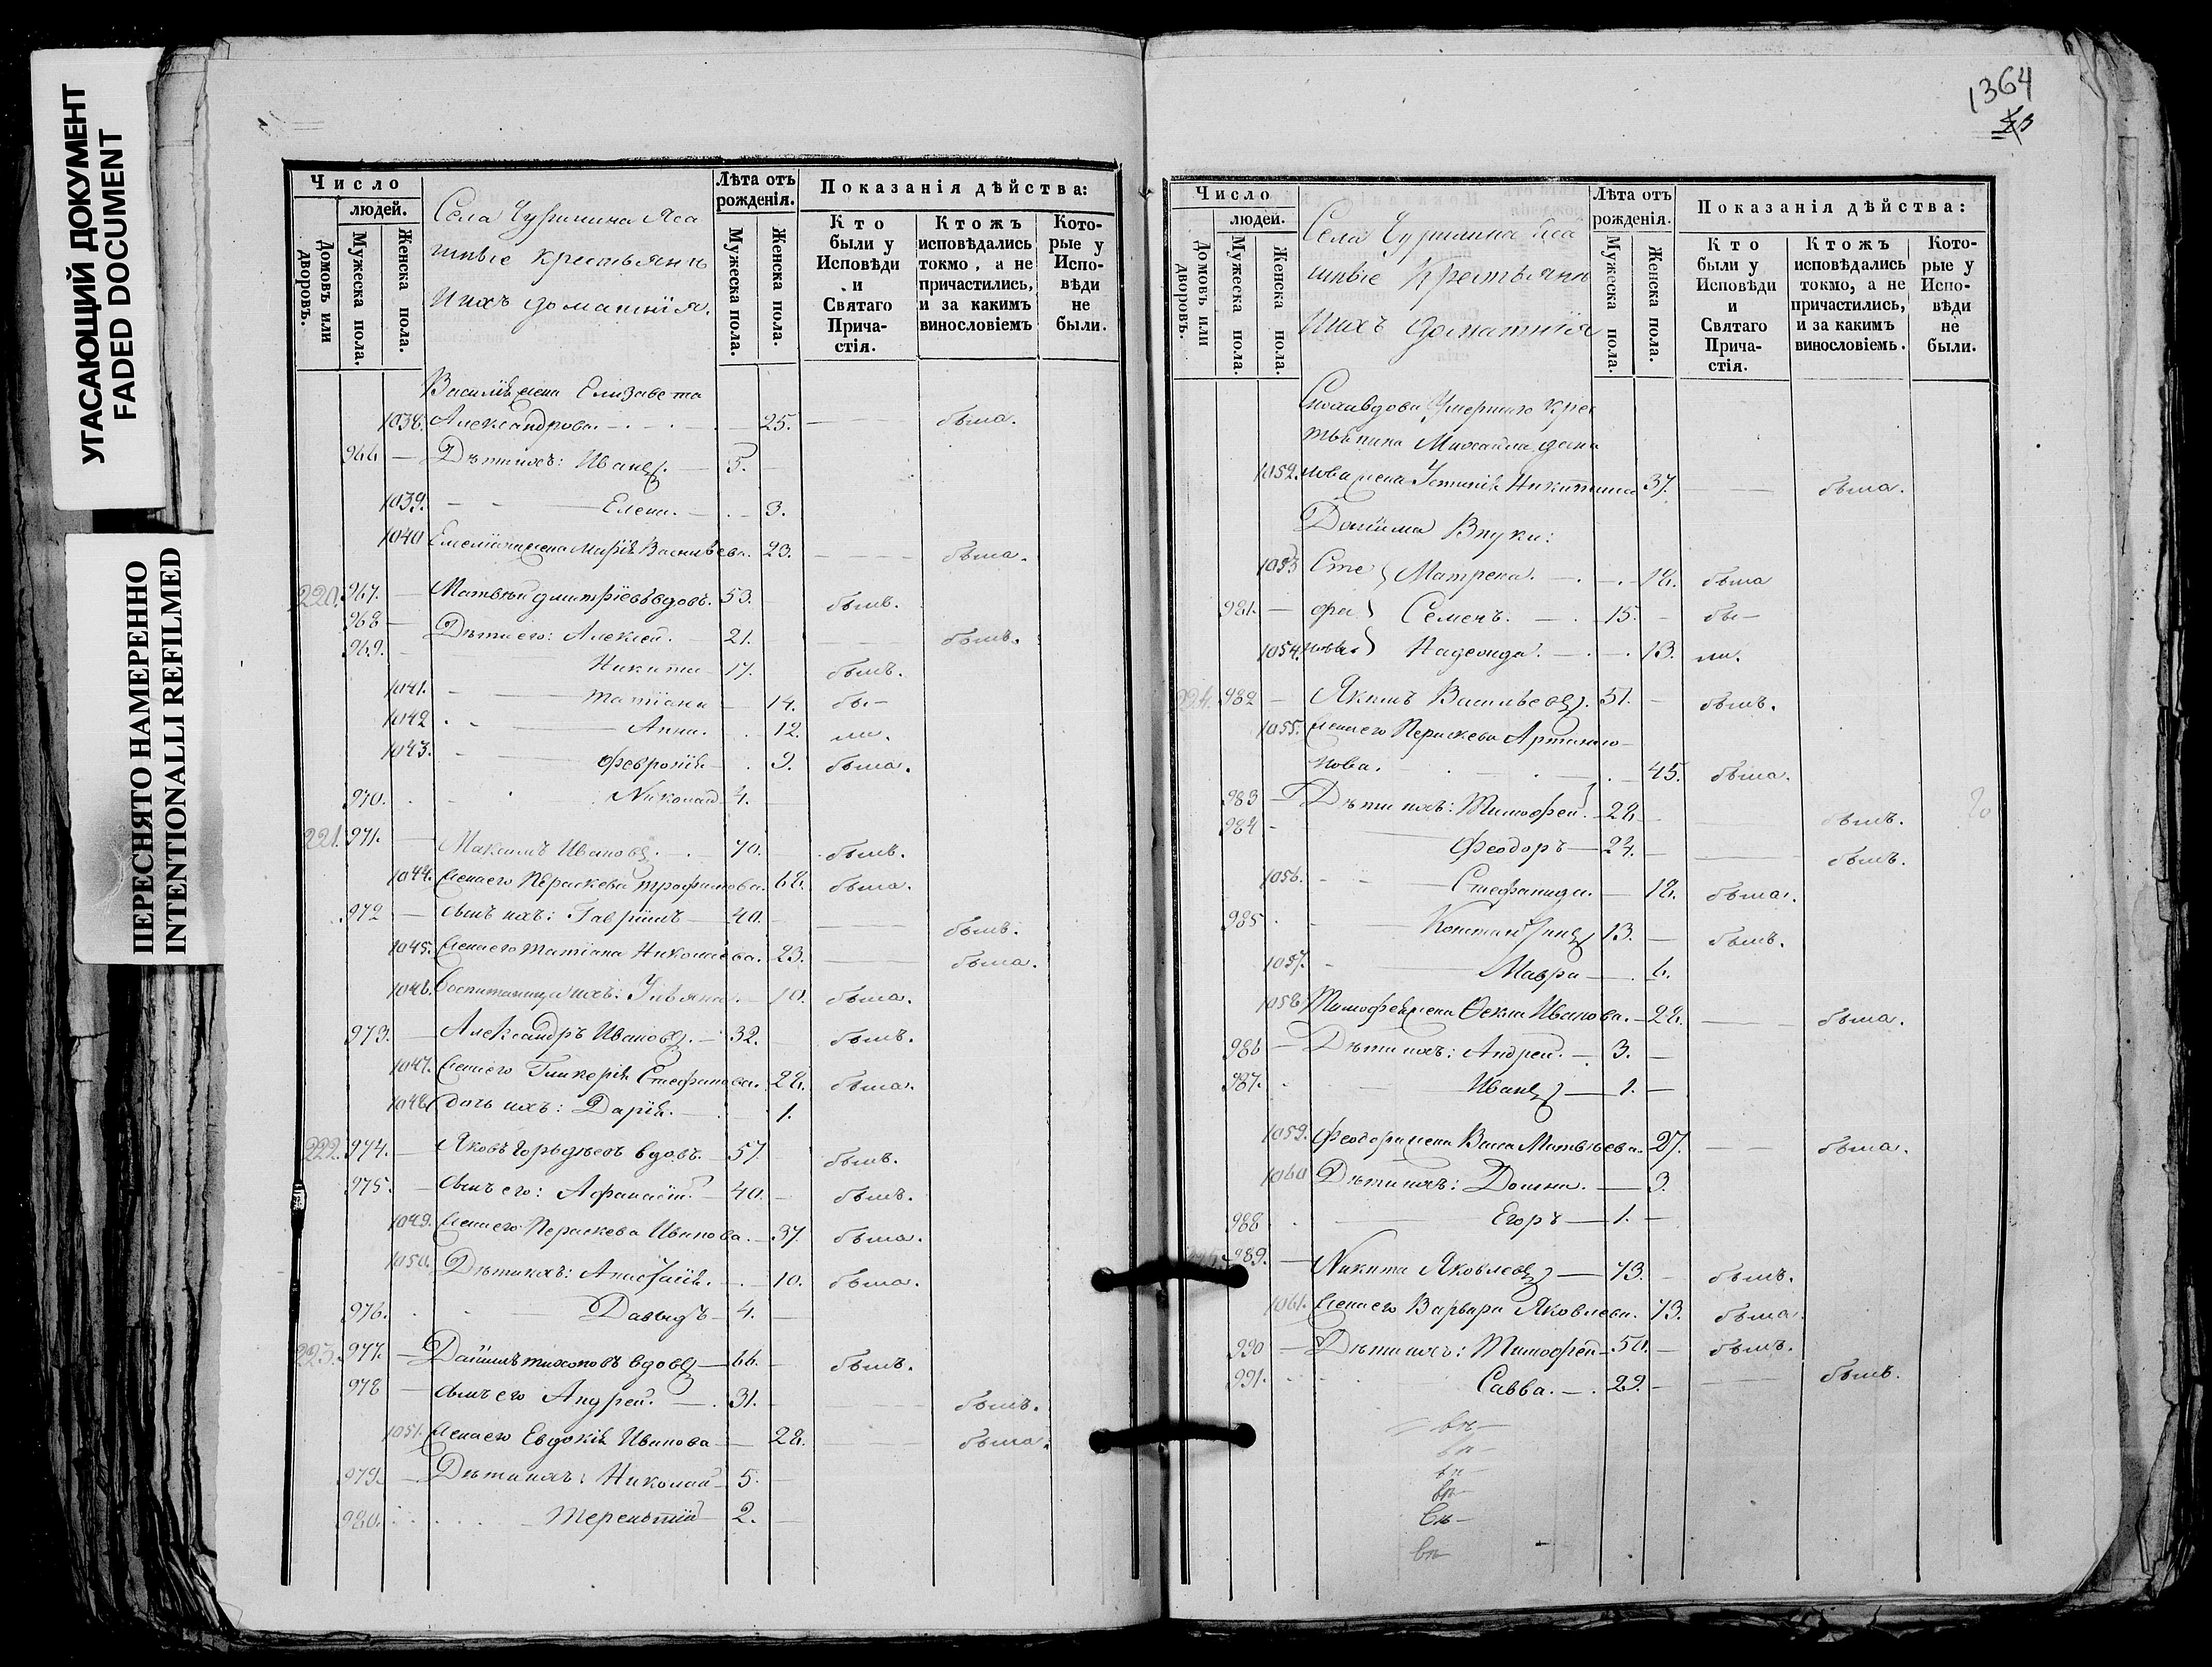 УГАСАЮЩИЙ ДОКУМЕНТ
FADED DOCUMENT
ПЕРЕСНЯТО НАМЕРЕННО
INTENTIONALLI REFILMED
Число
людей.
Домовъ или дворовъ.
Мужеска пола.
Женска пола.
Села Ясашные крестьяне и ихъ домашнія.
Лѣта отъ рожденія.
Мужеска пола.
Женска пола.
Показанія дѣйства:
Кто были у Исповѣди и Святаго Причастія.
Ктожъ исповѣдались токмо, а не причастились, и за какимъ винословіемъ
Которые у Исповѣди не были.
Василія жена Елизавета
1038. Александрова. 25. была.
966 Дѣти ихъ: Иванъ. 5.
1039. Елена. 3.
1040 Емеліана жена Марія Васильева. 23. была.
220. 967. Матвей Дмитріевъ вдовъ. 53. былъ.
968 Дѣти его: Алексей. 21. былъ.
969. Никита 17. былъ.
1041. Татіана 14. бы-
1042 Анна. 12. ли.
1043. Февронія 9. была.
970. Николай 4.
221. 971. Максимъ Ивановъ. 70. былъ.
1044. Жена его Параскева Трофимова. 68. была.
972 Сынъ ихъ: Гавріилъ 40. былъ.
1045. Жена его Татіана Николаева. 23. была.
1046. Воспитанница ихъ: Ульяна. 10. была.
973. Александръ Ивановъ. 32. былъ.
1047. Жена его Гликерія Стефанова. 28. была.
1048. Дочь ихъ: Дарія. 1.
222. 974. Яковъ вдовъ. 57 былъ.
975. Сынъ его: Афанасій. 40. былъ.
1049. Жена его Параскева Иванова. 37 была.
1050. Дѣти ихъ: Анастасія. 10. была.
976. Давыдъ 4.
223. 977. Даніилъ Тихоновъ вдовъ 66. былъ.
978 Сынъ его Андрей. 31. былъ.
1051. Жена его Евдокія Иванова 28. была.
979. Дѣти ихъ: Николай 5.
980. Терентій 2.
1364
Число
людей.
Домовъ или дворовъ.
Мужеска пола.
Женска пола.
Села Ясашные Крестьяне и ихъ домашнія
Лѣта отъ рожденія.
Мужеска пола.
Женска пола.
Показанія дѣйства:
Кто были у Исповѣди и Святаго Причастія.
Ктожъ исповѣдались токмо, а не причастились, и за какимъ винословіемъ.
Которые у Исповѣди не были.
Сноха вдова Умершаго Крес
тьянина Михаила Дани
1052. лова жена Устинія Никитина 37. была.
Даніила Внуки:
1053 Сте Матрена. 18. была
981. фа Семенъ. 15. бы-
1054. новы Надежда. 13. ли.
224. 982 Якимъ Васильевъ. 51. былъ.
1055. Жена его Параскева Артамо-
нова. 45. была.
983 Дѣти ихъ: Тимофей. 28. былъ.
984 Феодоръ 24. былъ.
1056. Стефанида. 18. была.
985 Константинъ 13. былъ.
1057. Мавра 6.
1058 Тимофея жена Фекла Иванова. 28. была.
986 Дѣти ихъ: Андрей. 3.
987. Иванъ 1.
1059. Феодора жена Васса Матвѣева. 27. была.
1060 Дѣти ихъ: Домна. 3.
988 Егоръ 1.
225. 989. Никита Яковлевъ 73. былъ.
1061. Жена его Варвара Яковлева. 73. была.
990 Дѣти ихъ: Тимофей 50. былъ.
991. Савва. 29. былъ.